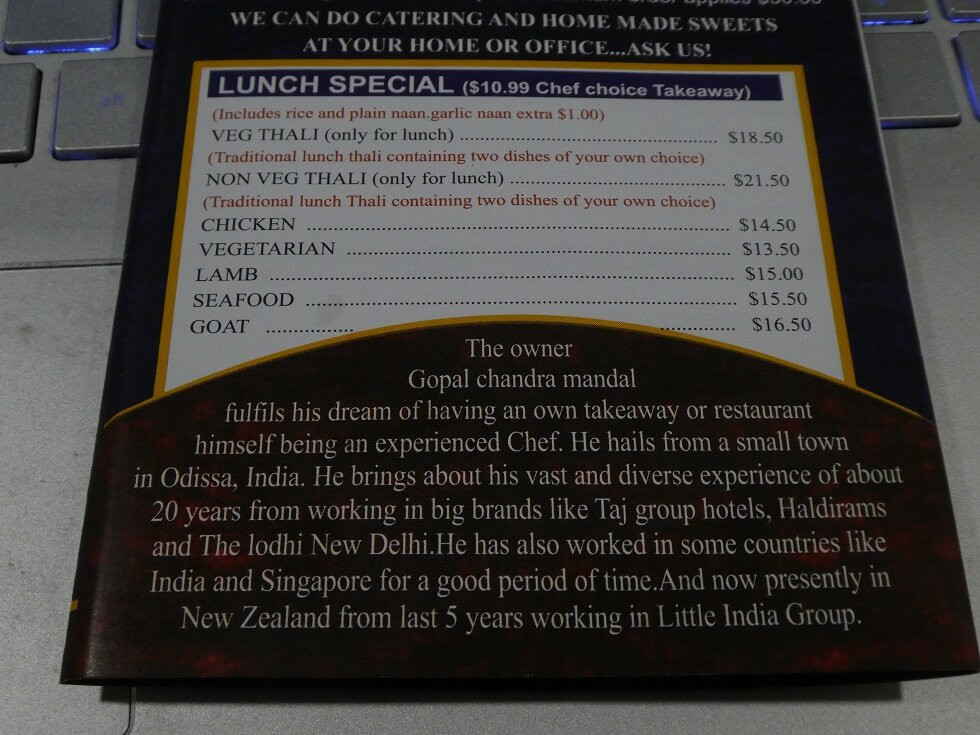 order applies $50.00
WE CAN DO CATERING AND HOME MADE SWEETS
AT YOUR HOME OR OFFICE...ASK US!
LUNCH SPECIAL ($10.99 Chef choice Takeaway)
(Includes rice and plain naan.garlic naan extra $1.00)
VEG THALI (only for lunch) ........................................................ $18.50
(Traditional lunch thali containing two dishes of your own choice)
NON VEG THALI (only for lunch) ............................................... $21.50
(Traditional lunch Thali containing two dishes of your own choice)
CHICKEN ........................................................................................ $14.50
VEGETARIAN ................................................................................ $13.50
LAMB ............................................................................................... $15.00
SEAFOOD ........................................................................................ $15.50
GOAT .................. ............... $16.50
The owner
Gopal chandra mandal
fulfils his dream of having an own takeaway or restaurant
himself being an experienced Chef. He hails from a small town
in Odissa, India. He brings about his vast and diverse experience of about
20 years from working in big brands like Taj group hotels, Haldirams
and The lodhi New Delhi.He has also worked in some countries like
India and Singapore for a good period of time.And now presently in
New Zealand from last 5 years working in Little India Group.